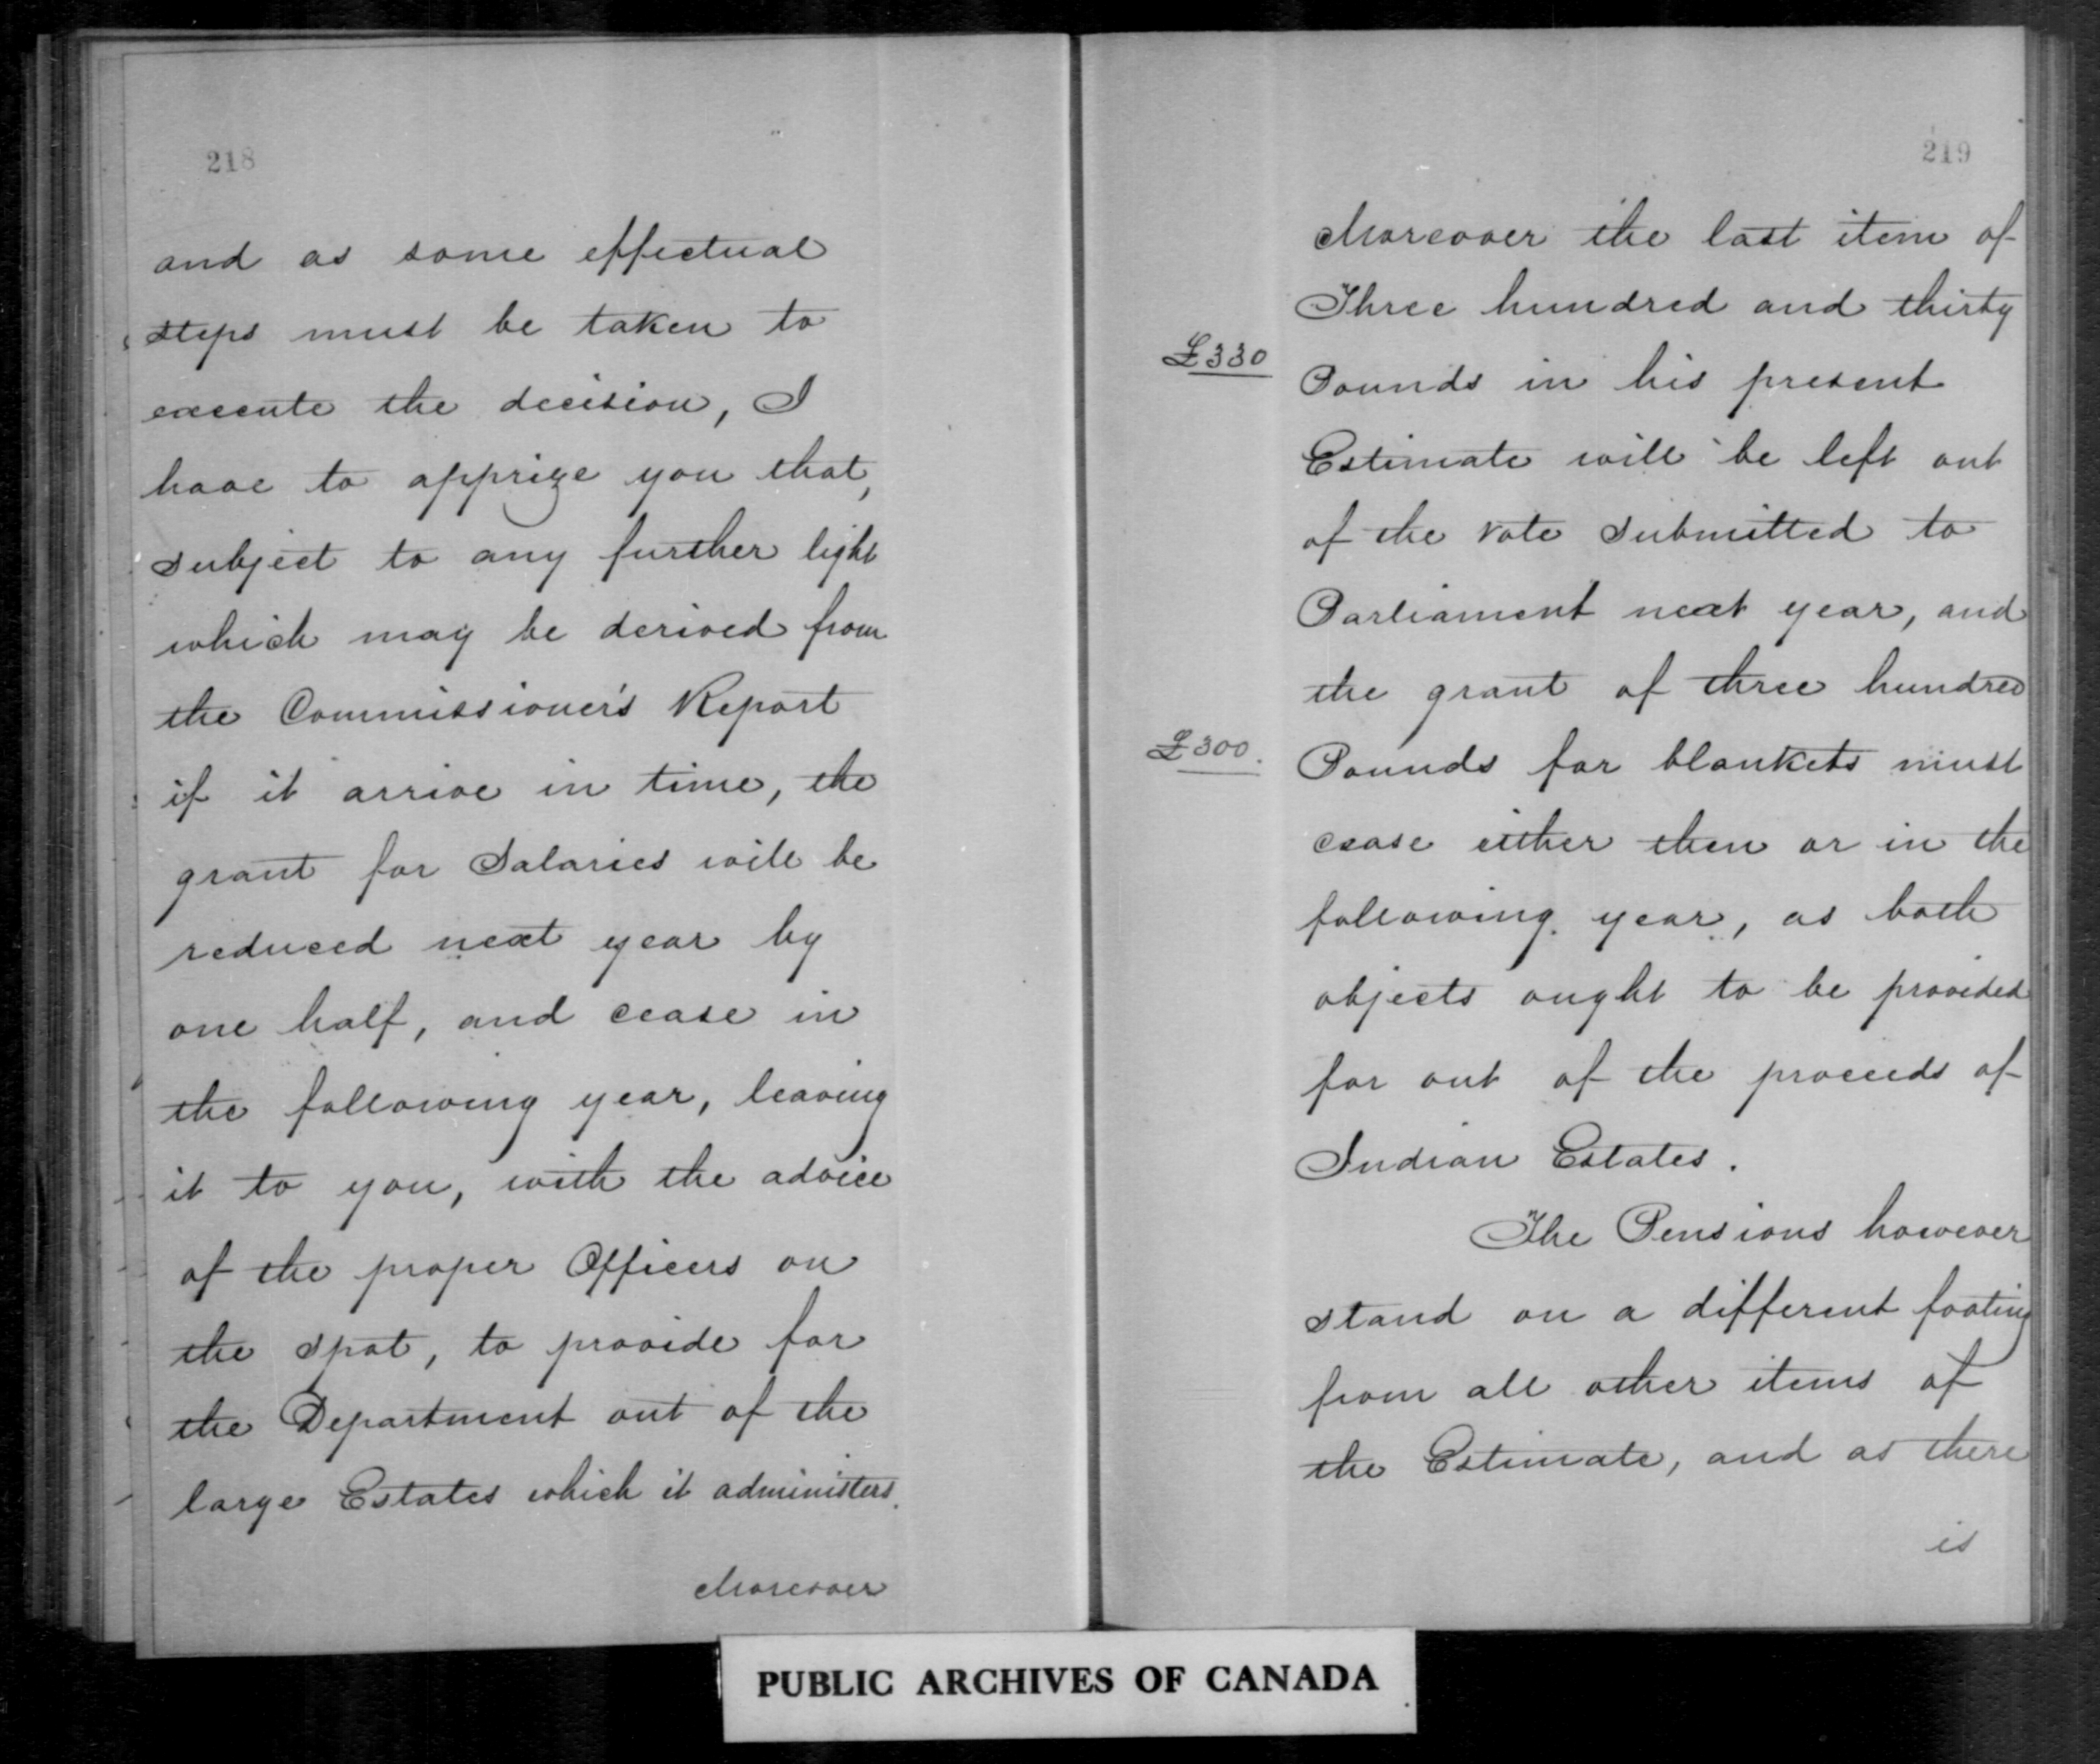 218
and as some effectual
steps must be taken to
execute the decision, I
have to apprize you that,
subject to any further light
which may be derived from
the Commissioner's Report
if it arrive in time, the
grant for Salaries will be
reduced next year by
one half, and cease in
the following year, leaving
it to you, with the advice
of the proper Officers on
the spot, to provide for
the Department out of the
large Estates which it administers.
Moreover
219
Moreover the last item of
Three hundred and thirty
£330
Pounds in his present
Estimate will be left out
of the vote submitted to
Parliament next year, and
the grant of three hundred
£300.
Pounds for blankets must
cease either then or in the
following year, as both
objects ought to be provided
for out of the proceeds of
Indian Estates.
The Pensions however
stand on a different footing
from all other items of
the Estimate, and as there
is
PUBLIC ARCHIVES OF CANADA